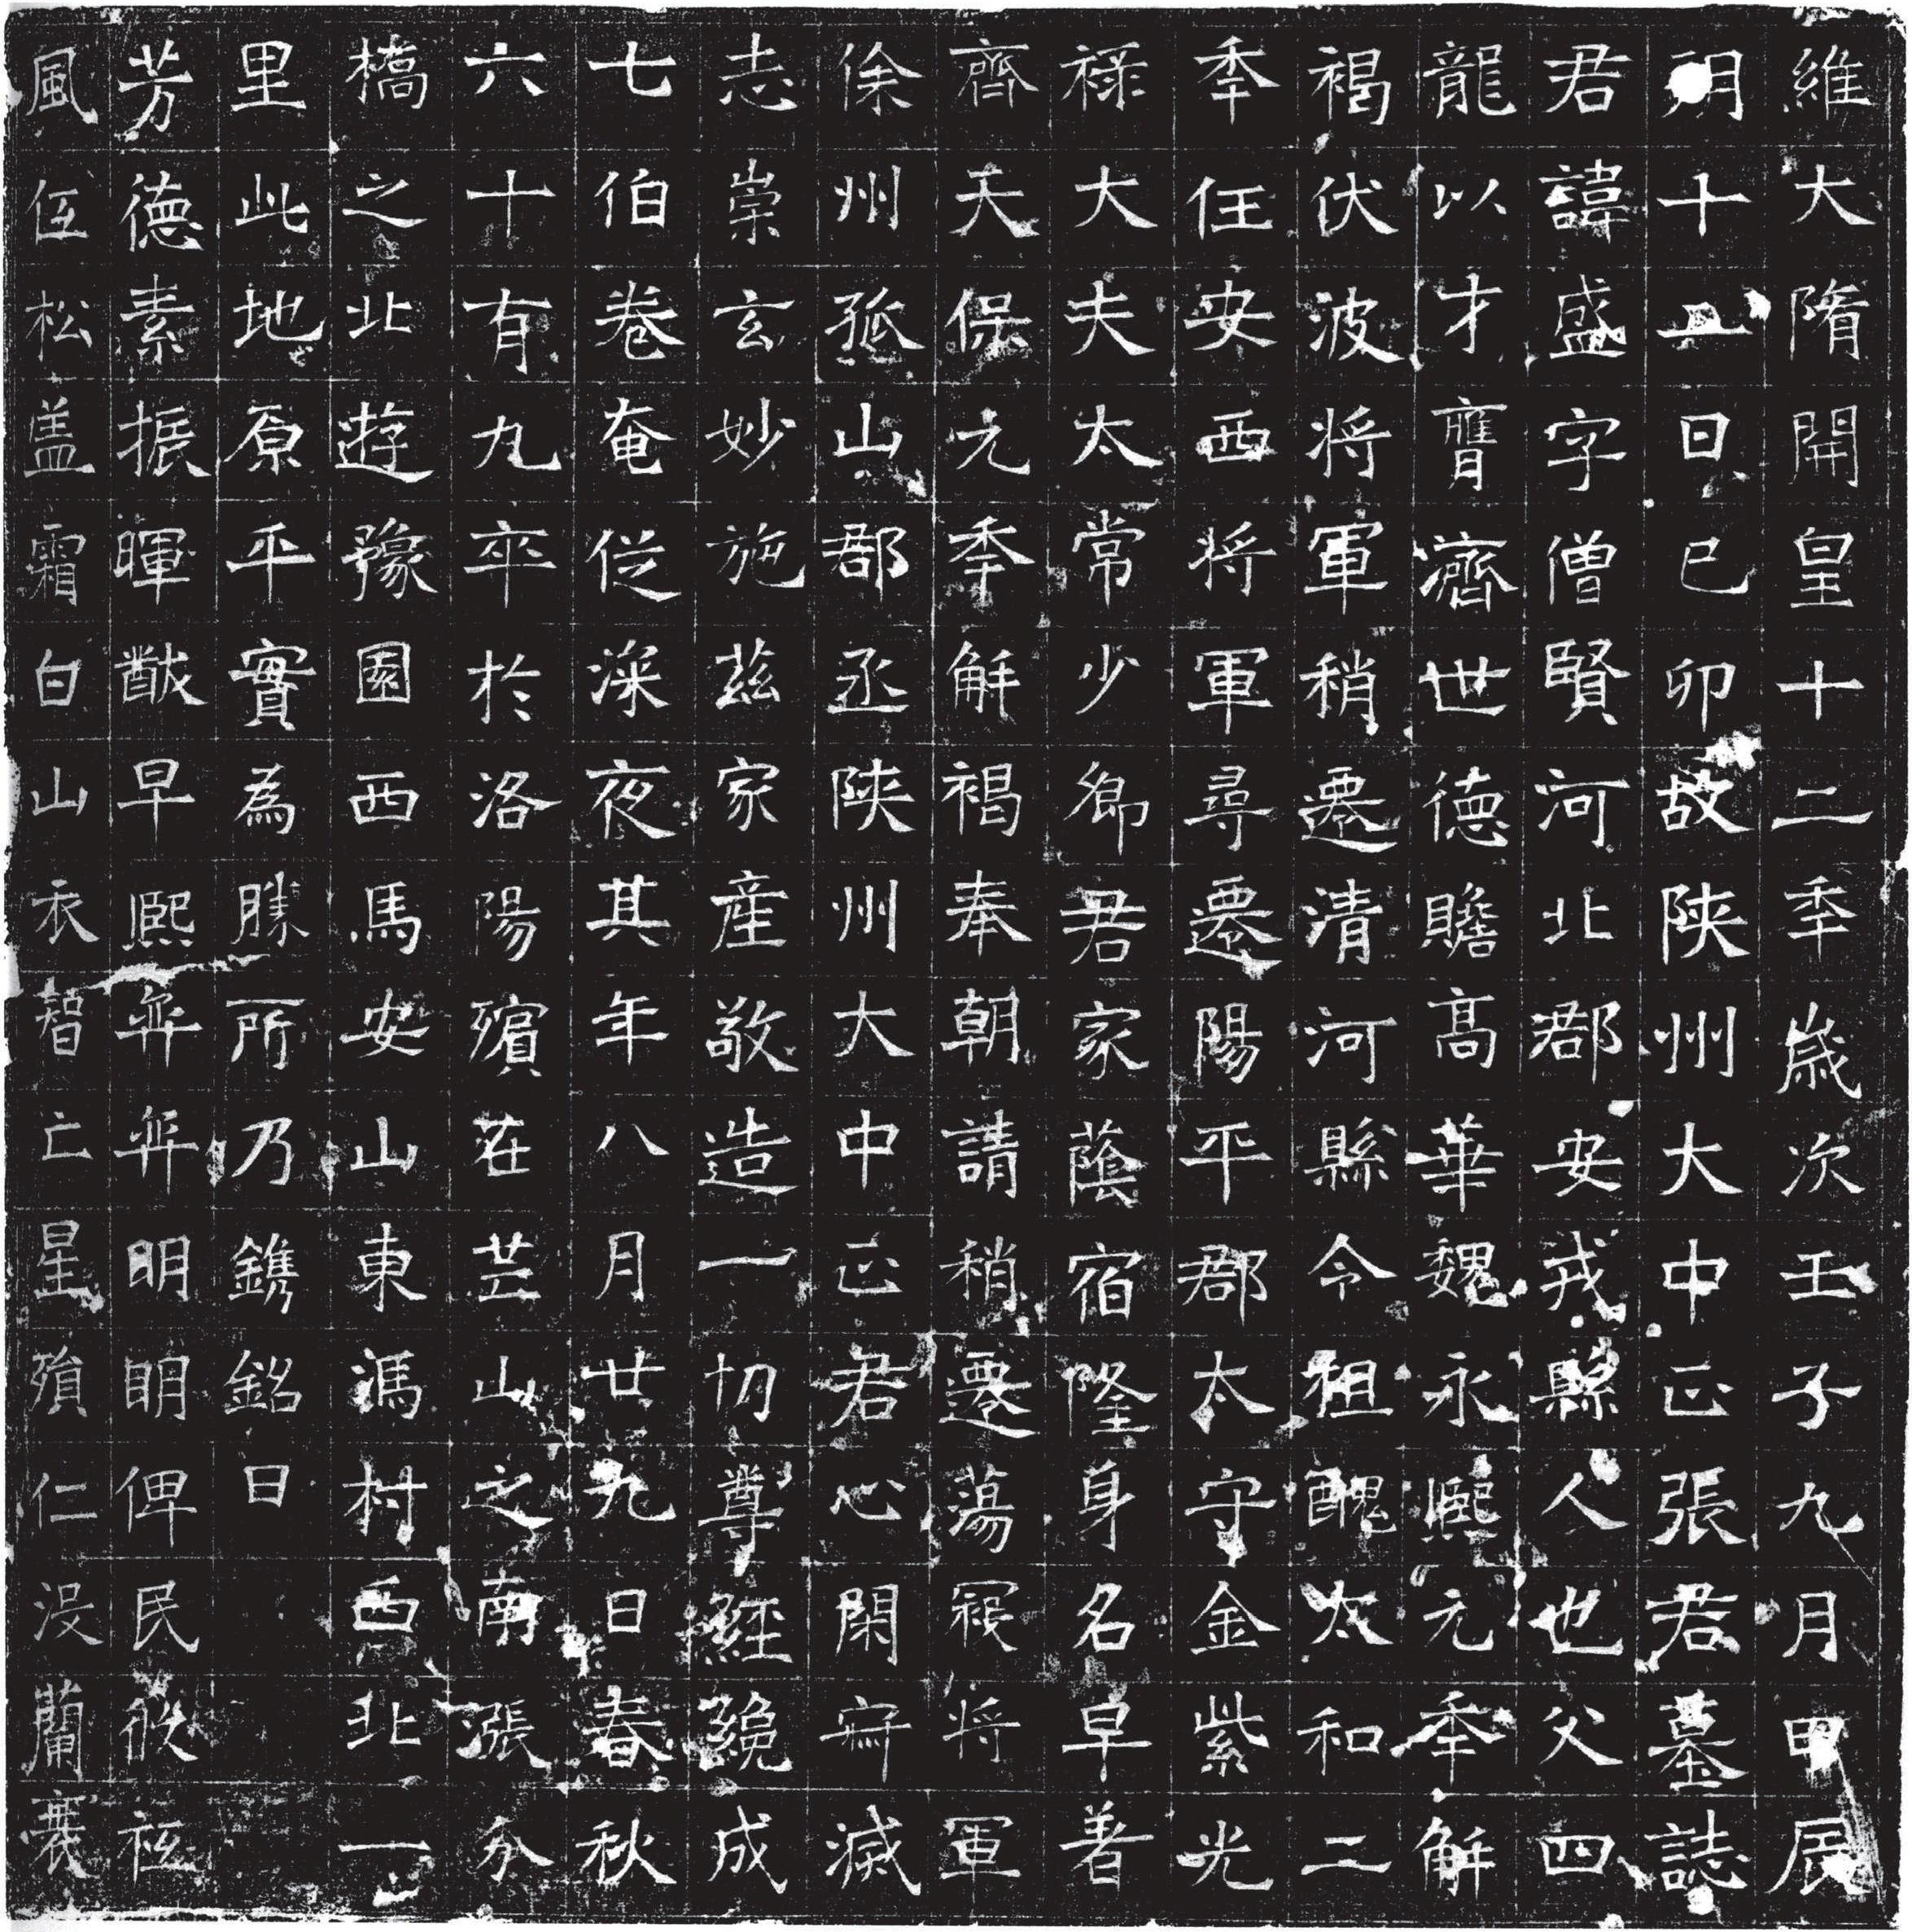 維大隋開皇十二季歲次壬子九月甲辰
朔十一日己卯故陝州大中正張君墓誌
君諱盛字僧賢河北郡安戎縣人也父四
龍以才膺濟世德贍高華魏永熙元季解
褐伏波將軍稍遷清河縣令祖醜太和二
季任安西將軍尋遷陽平郡太守金紫光
祿大夫太常少卿君家蔭宿隆身名早著
齊天保元季解褐奉朝請稍遷蕩寇將軍
徐州孤山郡丞陝州大中正君心閑寂滅
志崇玄妙施茲家產敬造一切尊經總成
七伯卷奄從深夜其年八月廿九日春秋
六十有九卒於洛陽殯在芒山之南張分
橋之北遊豫園西馬安山東馮村西北一
里此地原平實為勝所乃鐫銘曰
芳德素振暉猷早熙弈弈明明俾民
風伍松蓋霜白山衣智亡星殞仁沒蘭